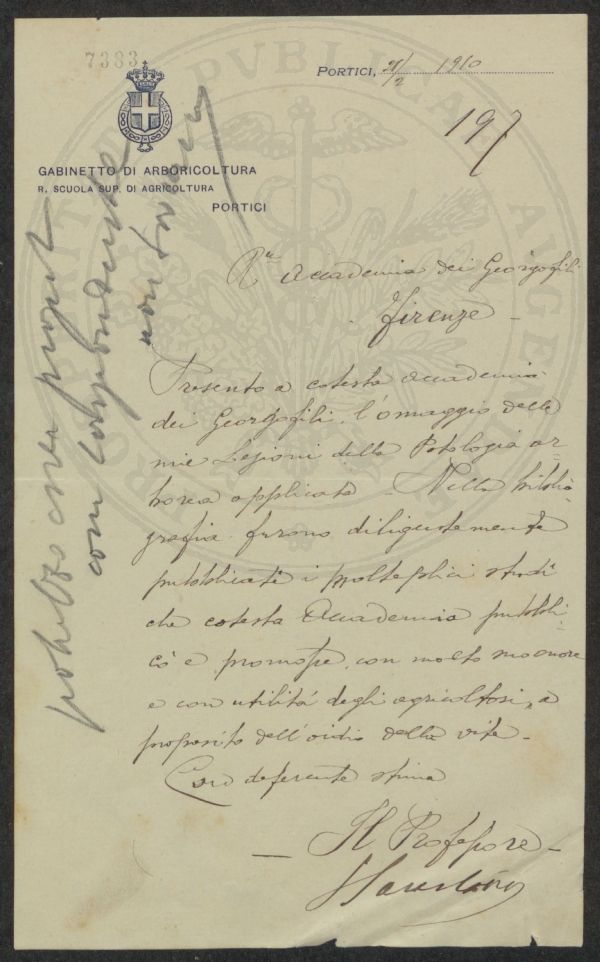 7383
PORTICI, 21/2 1910
197
GABINETTO DI ARBORICOLTURA
R. SCUOLA SUP. DI AGRICOLTURA
PORTICI
Rle Accademia dei Georgofili
Firenze -
Presento a cotesta accademia
dei Georgofili l'omaggio delle
mie Lezioni della Patologia ar-
borea applicata. Nella biblio-
grafia furono diligentemente
pubblicati i molteplici studi
che cotesta Accademia pubbli-
cò e promosse, con molto suo onore
e con utilità degli agricoltori, a
proposito dell'oidio della vite.
Con deferente stima
Il Professore -